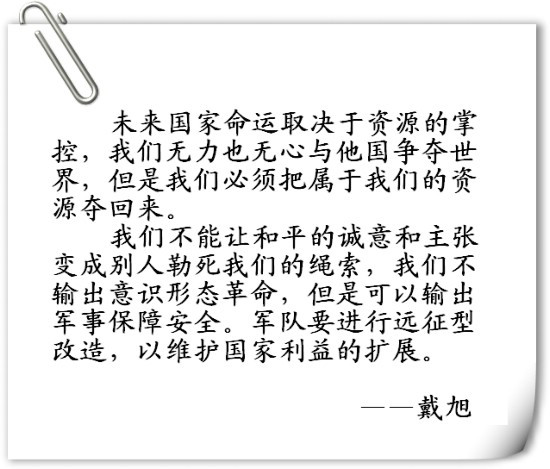 未来国家命运取决于资源的掌
控，我们无力也无心与他国争夺世
界，但是我们必须把属于我们的资
源夺回来。
我们不能让和平的诚意和主张
变成别人勒死我们的绳索，我们不
输出意识形态革命，但是可以输出
军事保障安全。军队要进行远征型
改造，以维护国家利益的扩展。
——戴旭